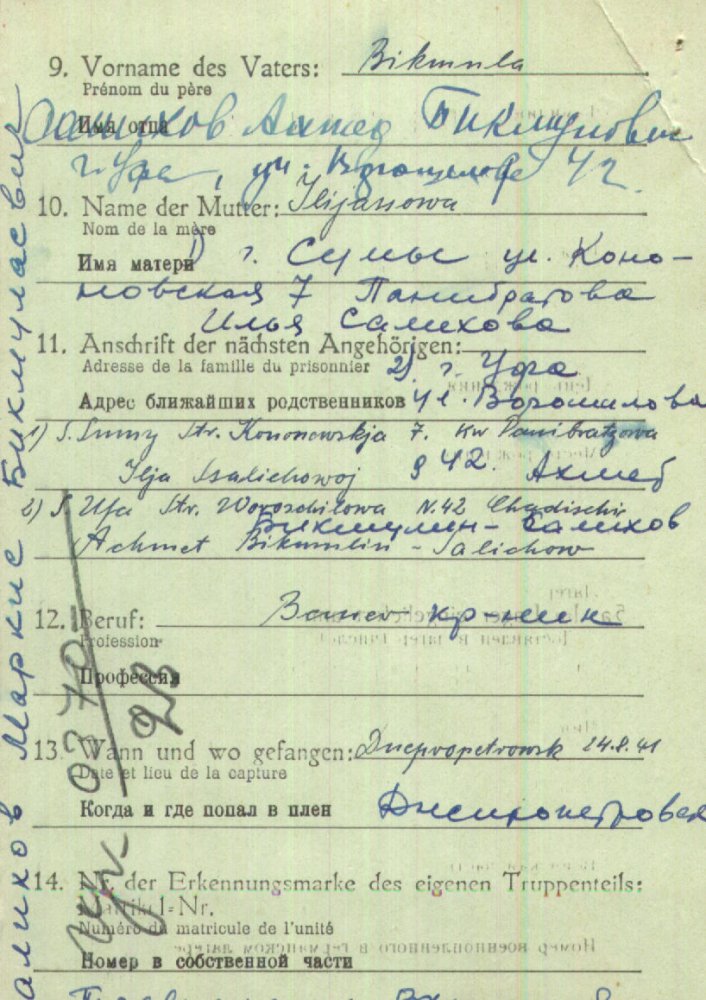 9. Vorname des Vaters: Bikmula
Prénom du père
Имя отца
Салихов Ахмед Бикмулович
г. Уфа, ул. Ворошилова 42
10. Name der Mutter: Ilijassowa
Nom de la mère
Имя матери 1) г. Сумы ул. Коно-
новская 7 Панибратова
Илья Салихова
11. Anschrift der nächsten Angehörigen:
Adresse de la famille du prisonnier 2) г. Уфа
Адрес ближайших родственников ул. Ворошилова
1) S. Sumy Str. Kononowskja 7. kw Panibratzowa
Ilja Ssalichowoj 42. Ахмед
2) S. Ufa Str. Woroschilowa N. 42
Бикмулин-Салихов
Achmet Bikmulin-Salichow
12. Beruf: Bauer кр-ник
Profession
Профессия
13. Wann und wo gefangen: Dnepropetrowsk 24.8.41
Date et lieu de la capture
Когда и где попал в плен Днепропетровск
14. Nr. der Erkennungsmarke des eigenen Truppenteils:
Matrikel-Nr.
Numéro du matricule de l'unité
Номер в собственной части
Салихов Маркис Бикмуласвич